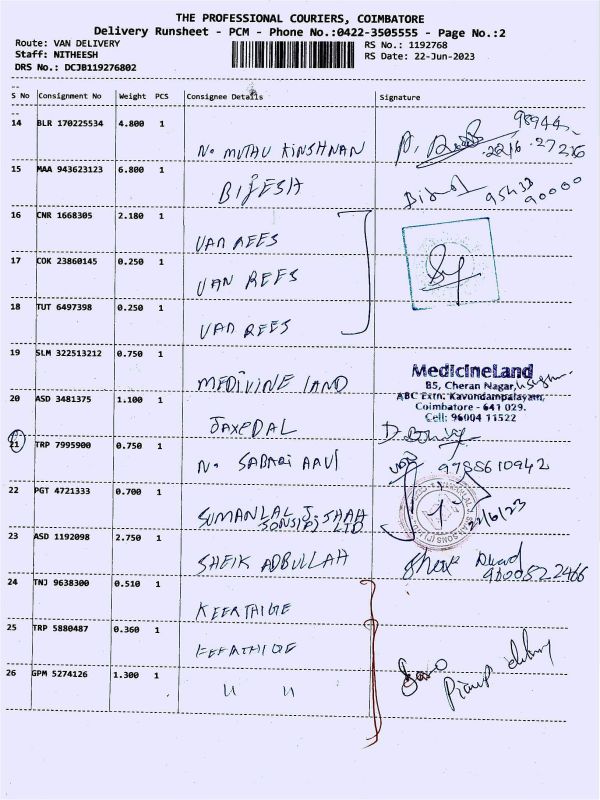 THE PROFESSIONAL COURIERS, COIMBATORE
Delivery Runsheet - PCM - Phone No.:0422-3505555 - Page No.:2
Route: VAN DELIVERY
RS No.: 1192768
Staff: NITHEESH
RS Date: 22-Jun-2023
DRS No.: DCJB119276802
S No Consignment No Weight PCS Consignee Details Signature
14 BLR 170225534 4.800 1
98944
N. MUTHU KINSHNAN
22/6
15 MAA 943623123 6.800 1
BIJESH
90000
16 CNR 1668305 2.180 1
VAN REES
17 COK 23860145 0.250 1
VAN REES
18 TUT 6497398 0.250 1
VAN REES
19 SLM 322513212 0.750 1
MEDIVINE LAND
MedicineLand
B5, Cheran Nagar,
ABC Extn. Kavundampalayam,
Coimbatore - 641 029.
Cell: 96004 11522
20 ASD 3481375 1.100 1
JAXEDAL
21 TRP 7995900 0.750 1
N. SABARI AAVI
9788610942
22 PGT 4721333 0.700 1
SUMANLAL J. SHAH
SONS(P) LTD
22/6/23
23 ASD 1192098 2.750 1
SHEIK ADBULLAH
9100522466
24 TNJ 9638300 0.510 1
KEERTHIGE
25 TRP 5880487 0.360 1
KEERTHIGE
26 GPM 5274126 1.300 1
" "